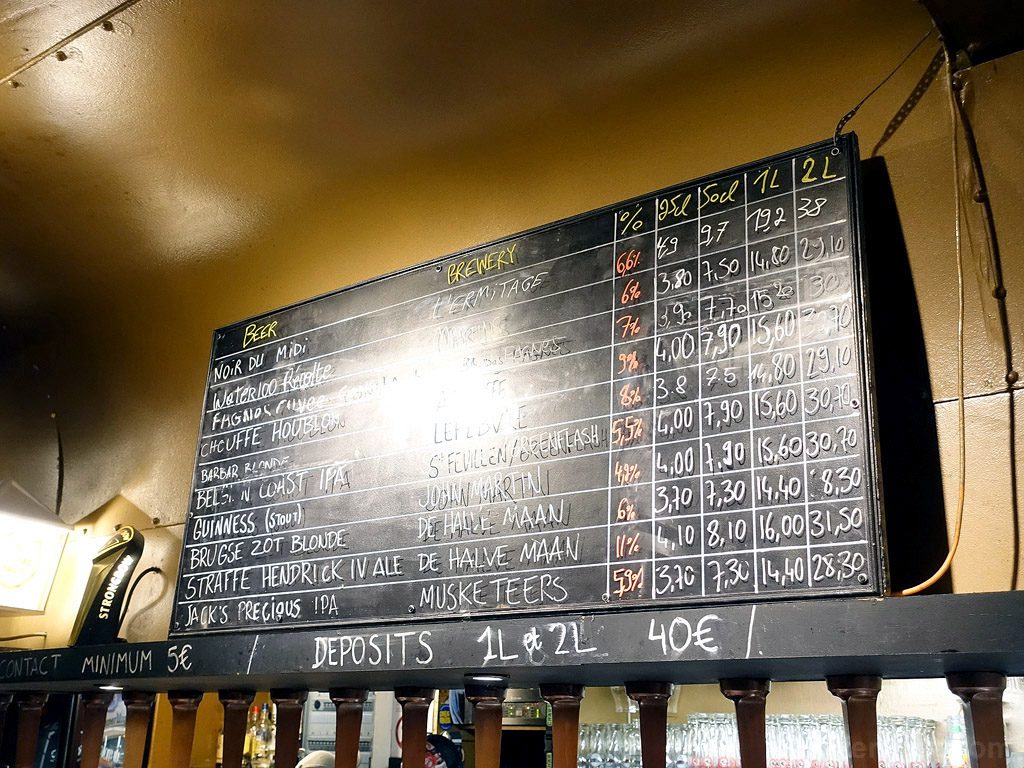 BEER BREWERY % 25cl 50cl 1L 2L
NOIR DU MIDI L'ERMITAGE 6,6% 4,9 9,7 19,2 38
WATERLOO Récolte 6% 3,80 7,50 14,80 29,10
FAGNES 7% 3,90 7,70 30
CHOUFFE HOUBLON 9% 4,00 7,90 15,60
BARBAR BLONDE LEFEBVRE 8% 3.8 7.5 14,80 29,10
COAST IPA ST FEUILLEN/GREENFLASH 5,5% 4,00 7,90 15,60 30,70
GUINNESS (STOUT) JOHN MARTIN 4,00 7,90 15,60 30,70
BRUGSE ZOT BLONDE DE HALVE MAAN 6% 3,70 7,30 14,40 8,30
STRAFFE HENDRICK IV ALE DE HALVE MAAN 11% 4,10 8,10 16,00 31,50
JACK'S PRECIOUS IPA MUSKETEERS 5,9% 3,70 7,30 14,40 28,30
CONTACT MINIMUM 5€ / DEPOSITS 1L et 2L 40€ /
STRONGBOW